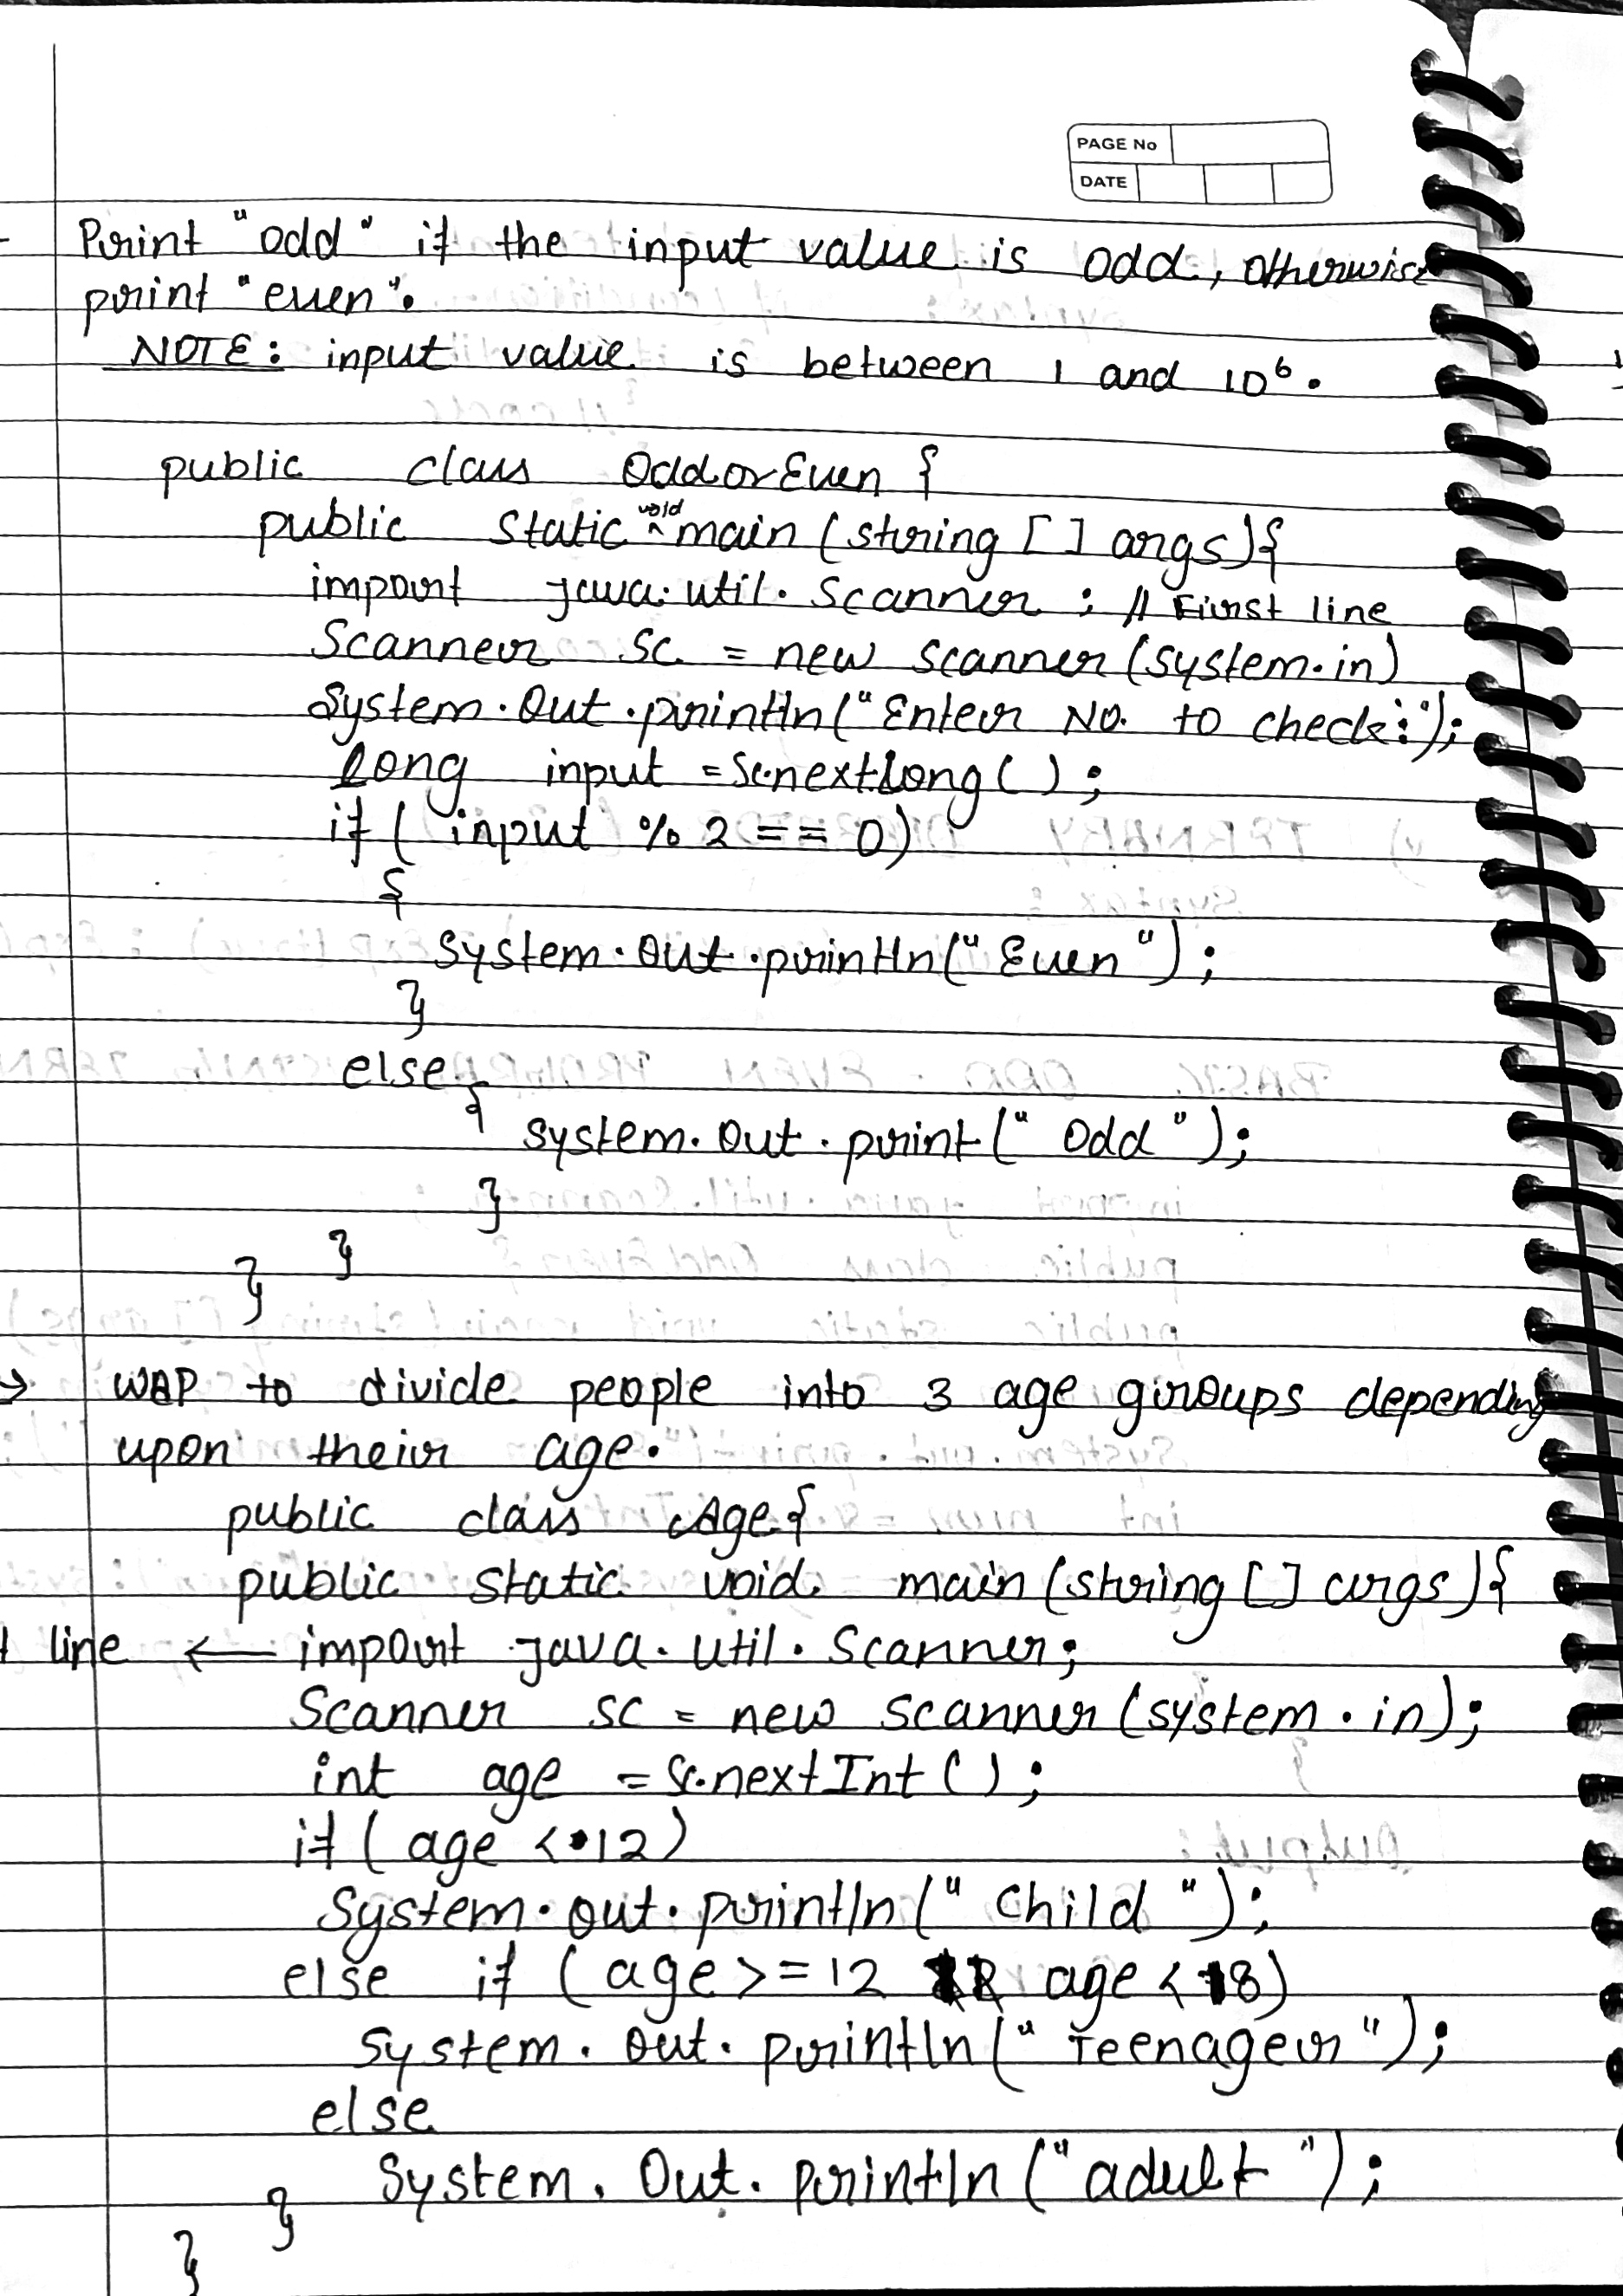 PAGE No
DATE
Print "odd" if the input value is odd, otherwise
print "even".
NOTE: input value is between 1 and 10⁶.
public class OddorEven {
public static void main (string [] args){
import java.util.Scanner ; // First line
Scanner sc = new scanner (system.in)
System.Out.println("Enter No. to check:");
long input = sc.nextLong() ;
if ( input % 2 == 0)
{
system.out.println("Even") ;
}
else
{ system.out.print(" Odd ");
}
}
}
→ WAP to divide people into 3 age groups depending
upon their age.
public class Age{
public static void main (string [] args){
line ← import java.util.Scanner;
Scanner sc = new scanner (system.in);
int age = sc.nextInt () ;
if ( age < 12)
System.out.println(" Child ");
else if (age >= 12 age < 18)
System.out.println(" Teenager ");
else
System.Out.println ("adult ") ;
}
}